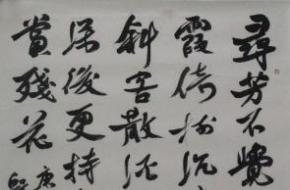 尋芳不覺
霞倚樹沉
斜客散酒
深後更持
賞殘花
唐